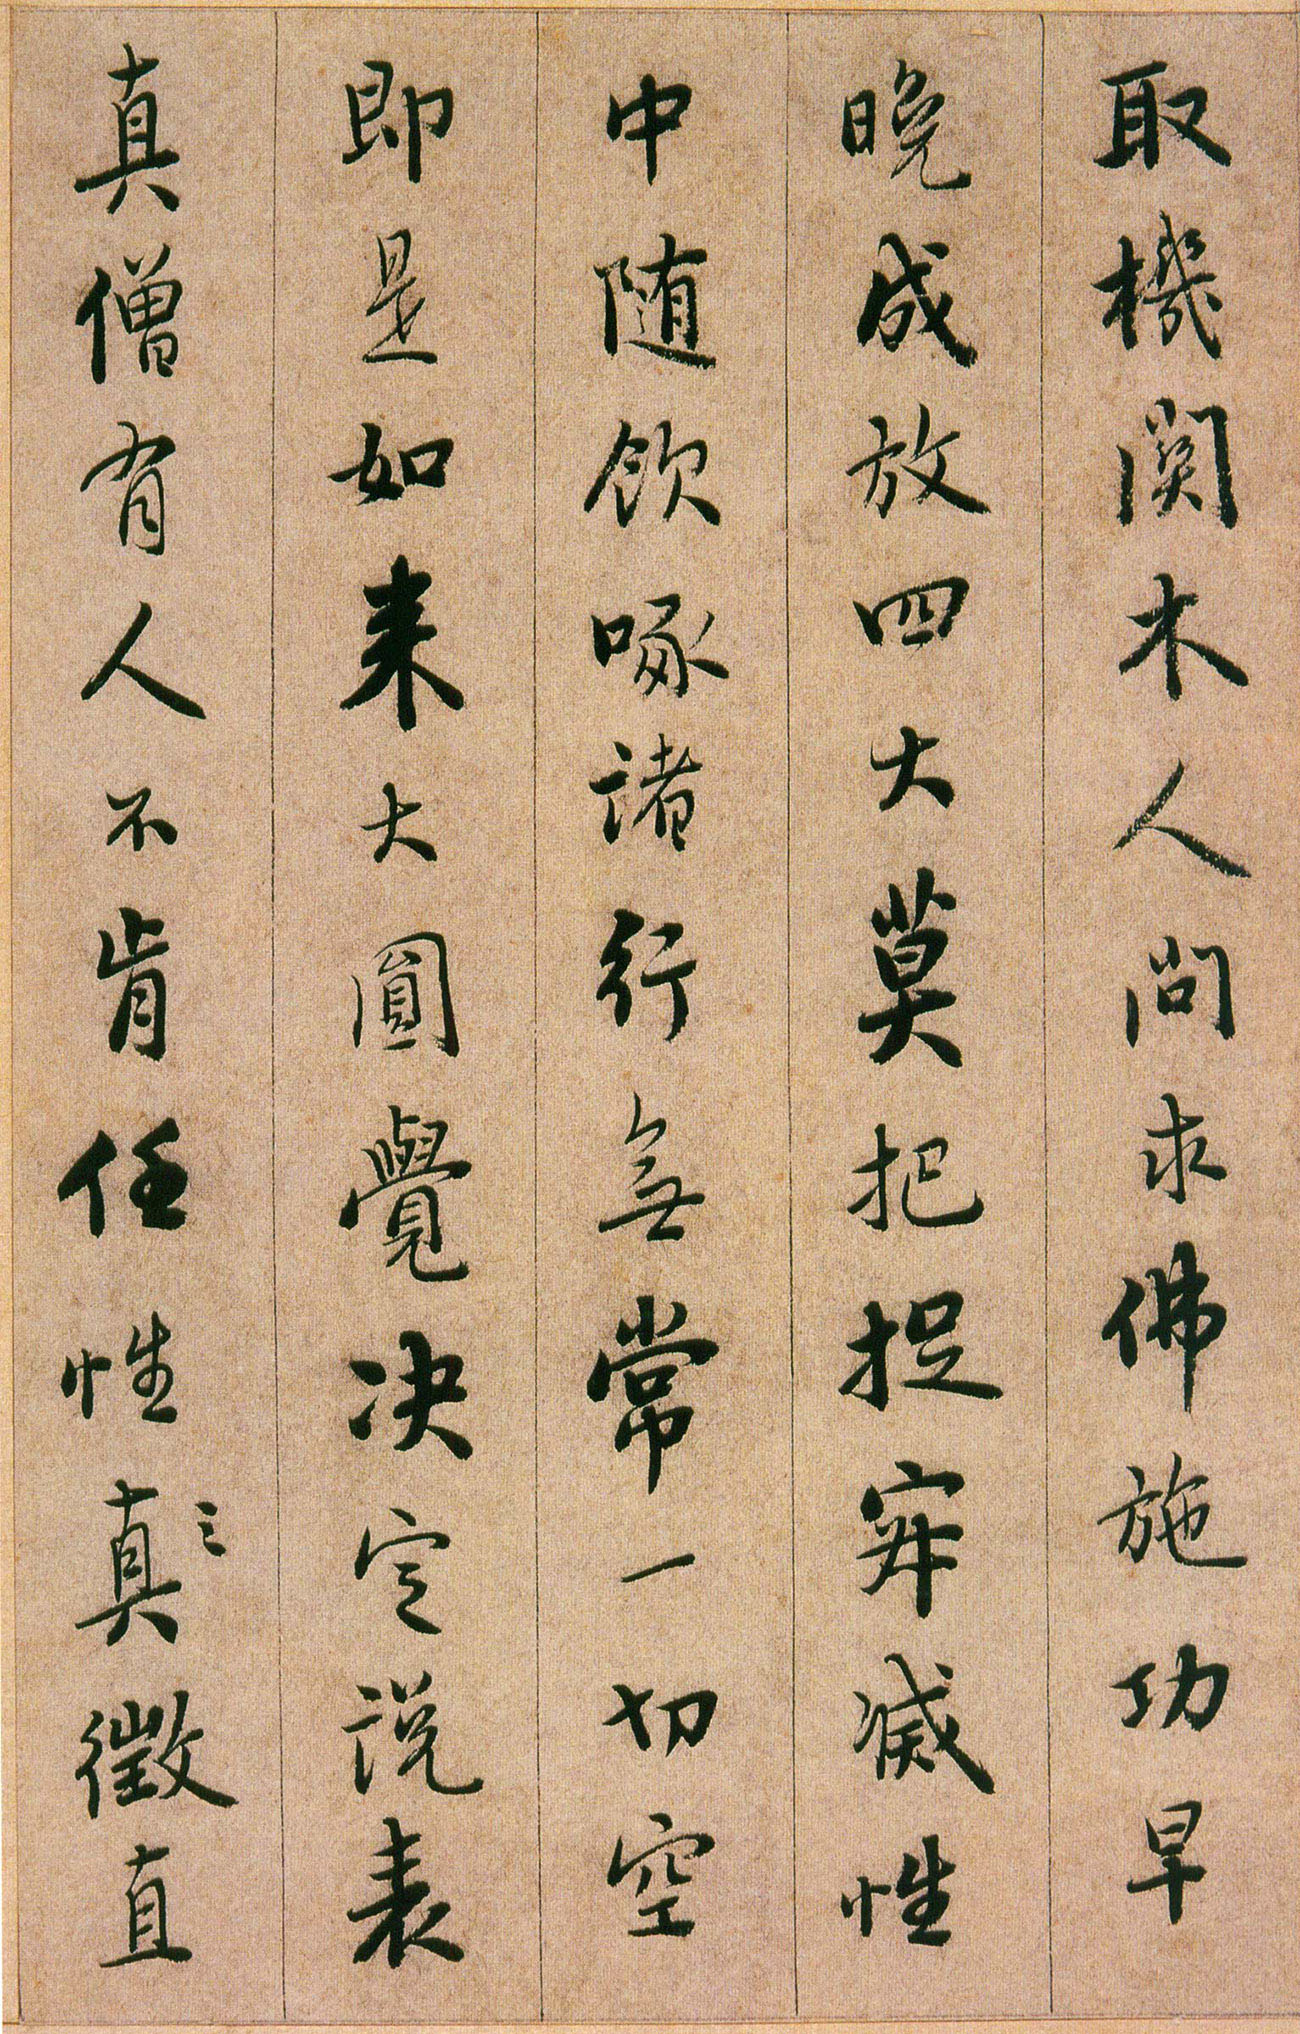 取機関木人問求佛施功早
晚成放四大莫把捉寂滅性
中随飲啄諸行無常一切空
即是如来大圓覺决定説表
真僧有人不肯任性真三徵直